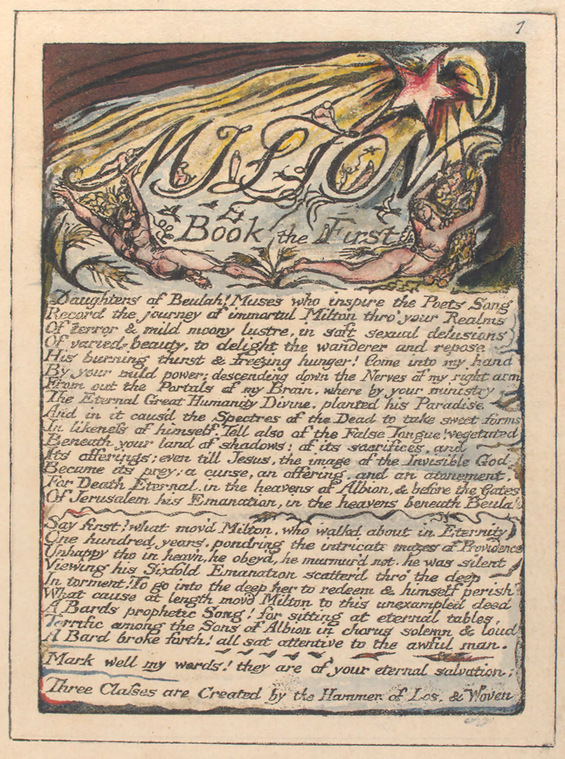 MILTON
Book the First
Daughters of Beulah! Muses who inspire the Poets Song
Record the journey of immortal Milton thro' your Realms
Of terror & mild moony lustre, in soft sexual delusions
Of varied beauty, to delight the wanderer and repose
His burning thirst & freezing hunger! Come into my hand
By your mild power; descending down the Nerves of my right arm
From out the Portals of my Brain, where by your ministry
The Eternal Great Humanity Divine. planted his Paradise,
And in it caus'd the Spectres of the Dead to take sweet forms
In likeness of himself. Tell also of the False Tongue! vegetated
Beneath your land of shadows; of its sacrifices, and
Its offerings; even till Jesus, the image of the Invisible God
Became its prey; a curse, an offering, and an atonement,
For Death Eternal in the heavens of Albion, & before the Gates
Of Jerusalem his Emanation, in the heavens beneath Beulah
Say first! what mov'd Milton, who walkd about in Eternity
One hundred years, pondring the intricate mazes of Providence
Unhappy tho in heav'n, he obey'd, he murmur'd not. he was silent
Viewing his Sixfold Emanation scatter'd thro' the deep
In torment! To go into the deep her to redeem & himself perish?
What cause at length mov'd Milton to this unexampled deed
A Bards prophetic Song! for sitting at eternal tables,
Terrific among the Sons of Albion in chorus solemn & loud
A Bard broke forth! all sat attentive to the awful man.
Mark well my words! they are of your eternal salvation:
Three Classes are Created by the Hammer of Los, & Woven